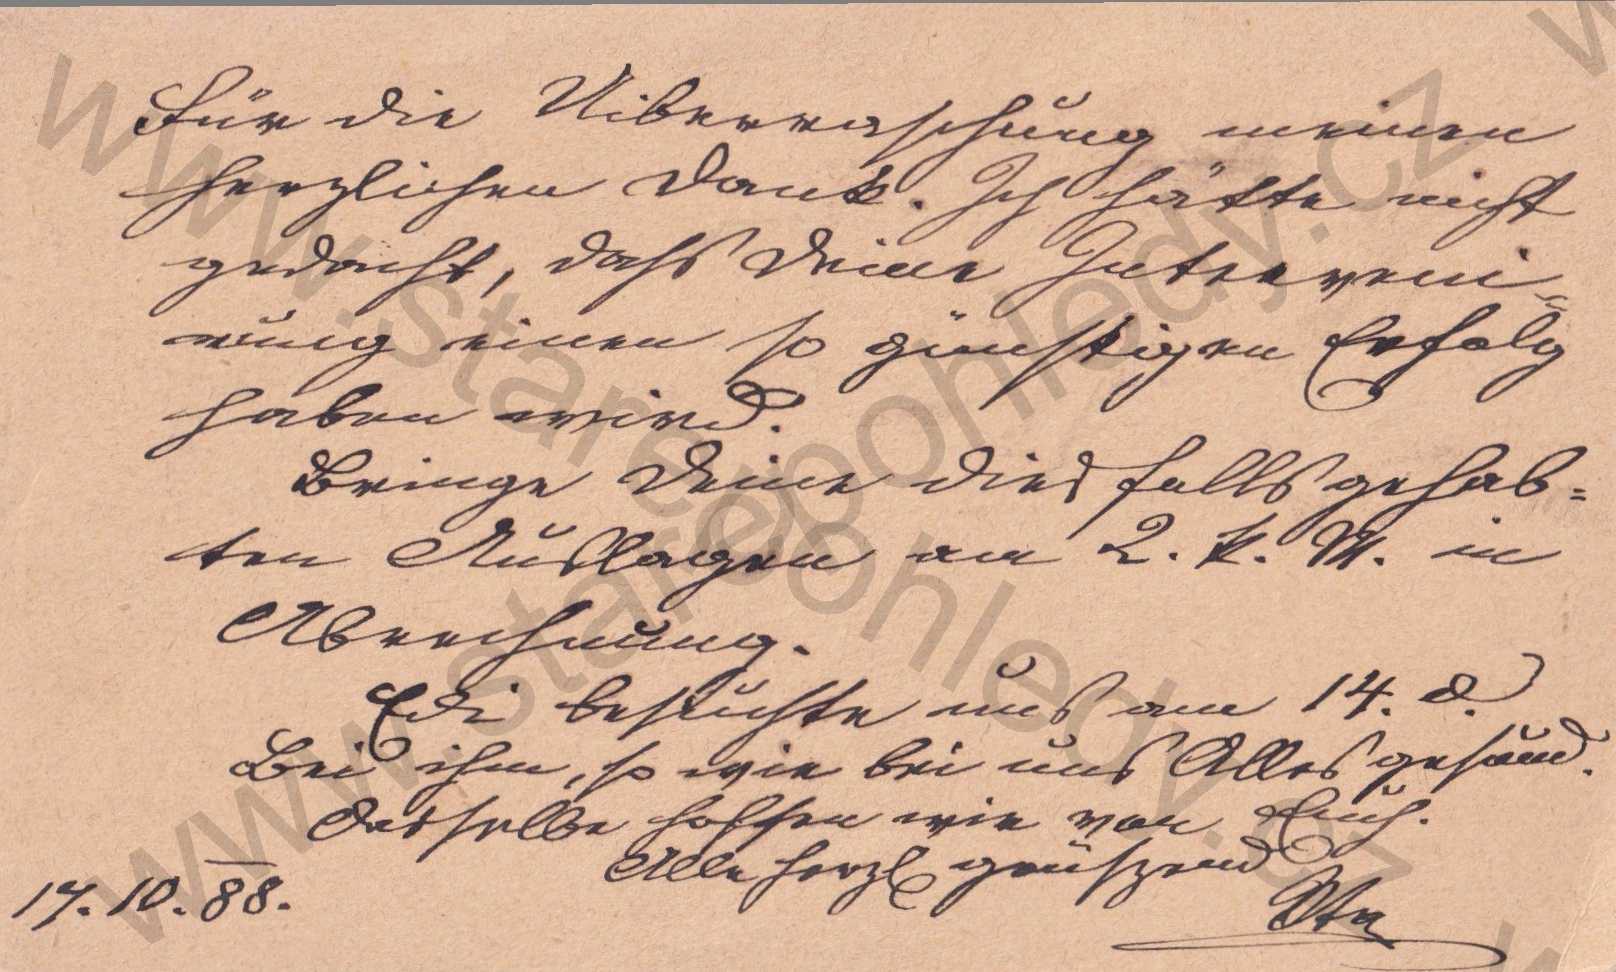 Für die Uiberraschung meinen
herzlichen Dank. Ich hätte nicht
gedacht, dahs Deine Interveni=
rung einen so günstigen Erfolg
haben wird.
Bringe Deine diesfalls gehab=
ten Auslagen am 2. k. M. in
Abrechnung.
Edi besuchte uns am 14. d.
Bei ihm, so wie bei uns Alles gesund.
Dasselbe hoffen wir von Euch.
Alle herzl grüszend
17. 10. 88.
www.starepohledy.cz
www.starepohledy.cz